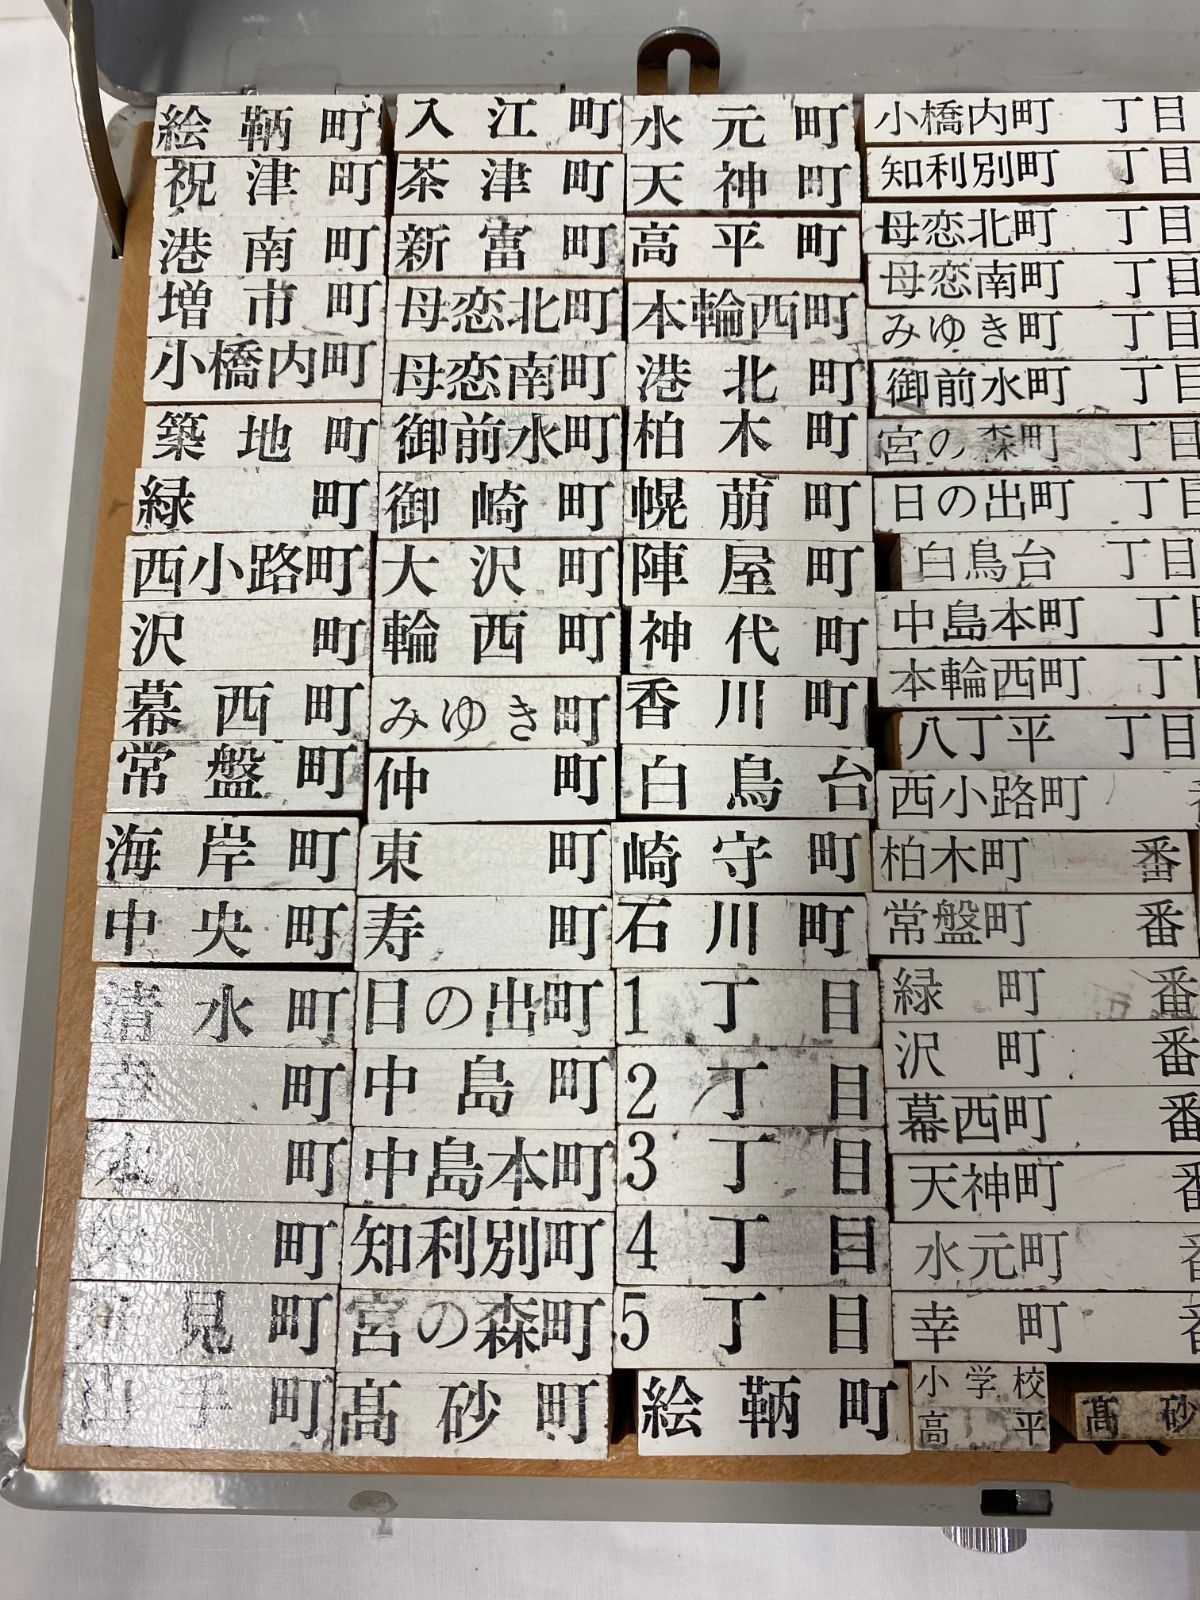 絵鞆町
祝津町
港南町
増市町
小橋内町
築地町
緑町
西小路町
沢町
幕西町
常盤町
海岸町
中央町
清水町
幸町
町
町
見町
山手町
入江町
茶津町
新富町
母恋北町
母恋南町
御前水町
御崎町
大沢町
輪西町
みゆき町
仲町
東町
寿町
日の出町
中島町
中島本町
知利別町
宮の森町
高砂町
水元町
天神町
高平町
本輪西町
港北町
柏木町
幌萠町
陣屋町
神代町
香川町
白鳥台
崎守町
石川町
1丁目
2丁目
3丁目
4丁目
5丁目
絵鞆町
小橋内町 丁目
知利別町 丁目
母恋北町 丁目
母恋南町 丁目
みゆき町 丁目
御前水町 丁目
宮の森町 丁目
日の出町 丁目
白鳥台 丁目
中島本町 丁目
本輪西町 丁目
八丁平 丁目
西小路町
柏木町 番
常盤町 番
緑町 番
沢町 番
幕西町 番
天神町 番
水元町
幸町
小学校
高平
高砂